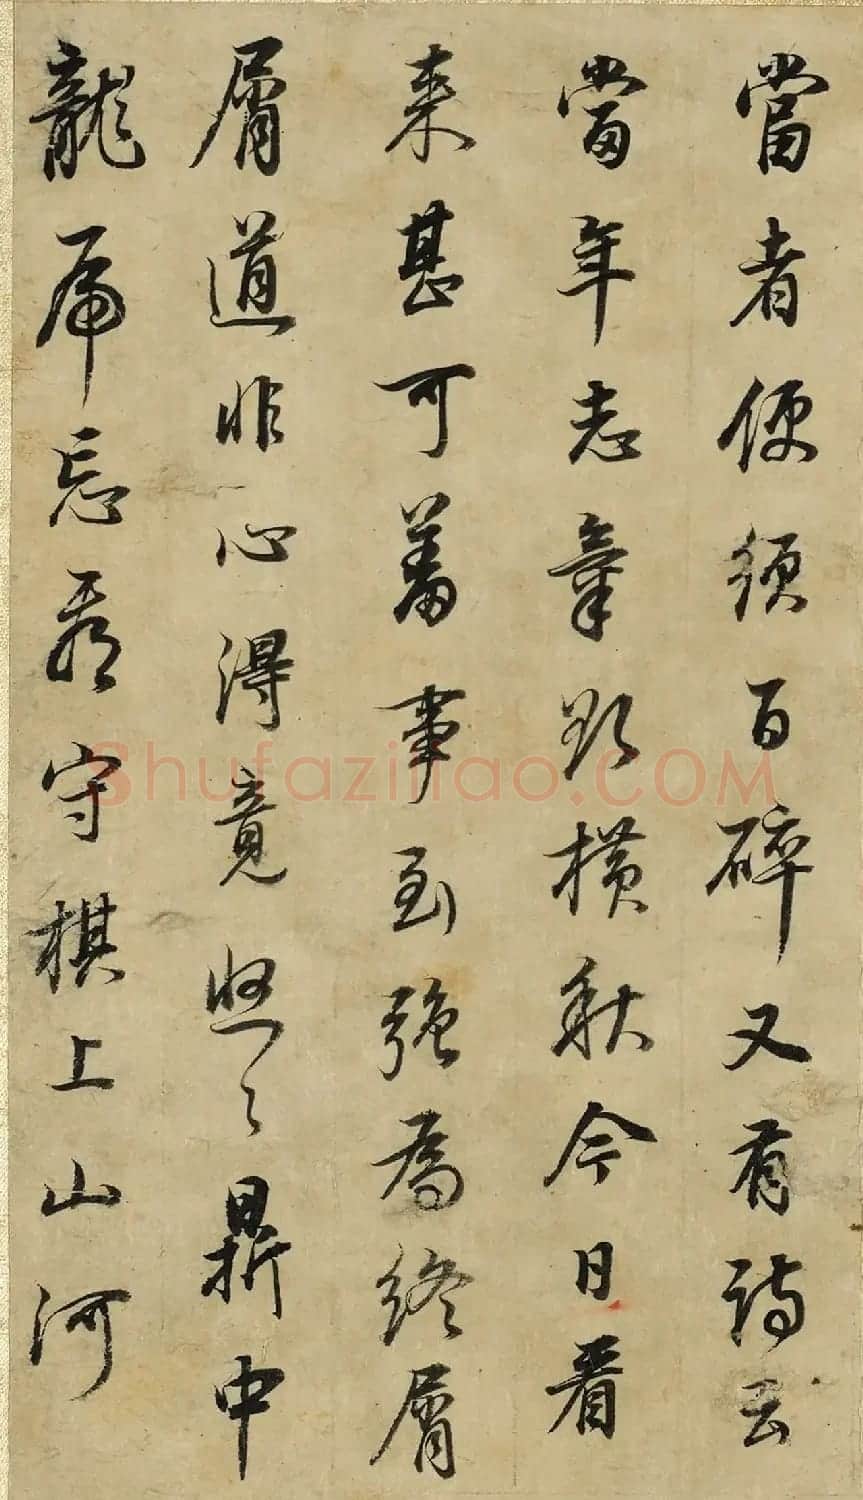 當者便須百碎又有詩云
當年志氣欲橫秋今日看
來甚可羞事到強為終屑
屑道非心得竟悠々鼎中
龍虎忘看守棋上山河
Shufaziliao.COM